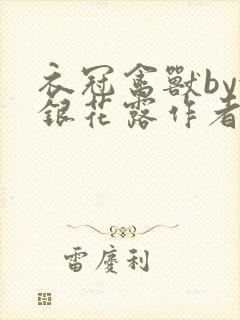 衣冠禽獸by
銀花露作者
雷慶利